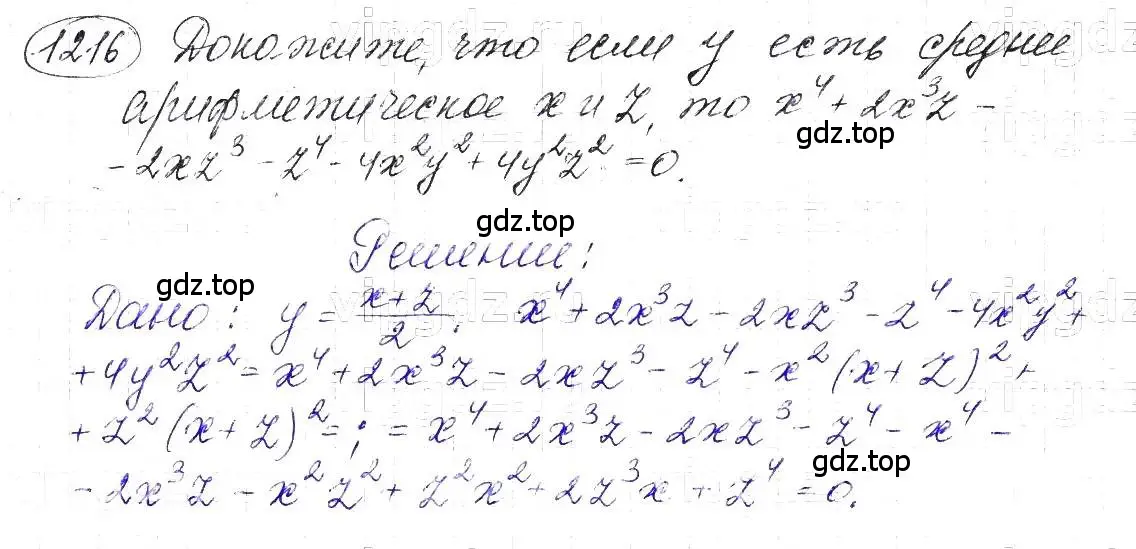 1216 Докажите, что если y есть среднее
арифметическое x и z, то x⁴ + 2x³z -
- 2xz³ - z⁴ - 4x²y² + 4y²z² = 0.
gdz.top
gdz.top
Решение:
gdz.top
Дано: y = (x+z)/2; x⁴ + 2x³z - 2xz³ - z⁴ - 4x²y² +
+ 4y²z² = x⁴ + 2x³z - 2xz³ - z⁴ - x²(x+z)² +
gdz.top
+ z²(x+z)² = ; = x⁴ + 2x³z - 2xz³ - z⁴ - x⁴ -
gdz.top
- 2x³z - x²z² + z²x² + 2z³x + z⁴ = 0.